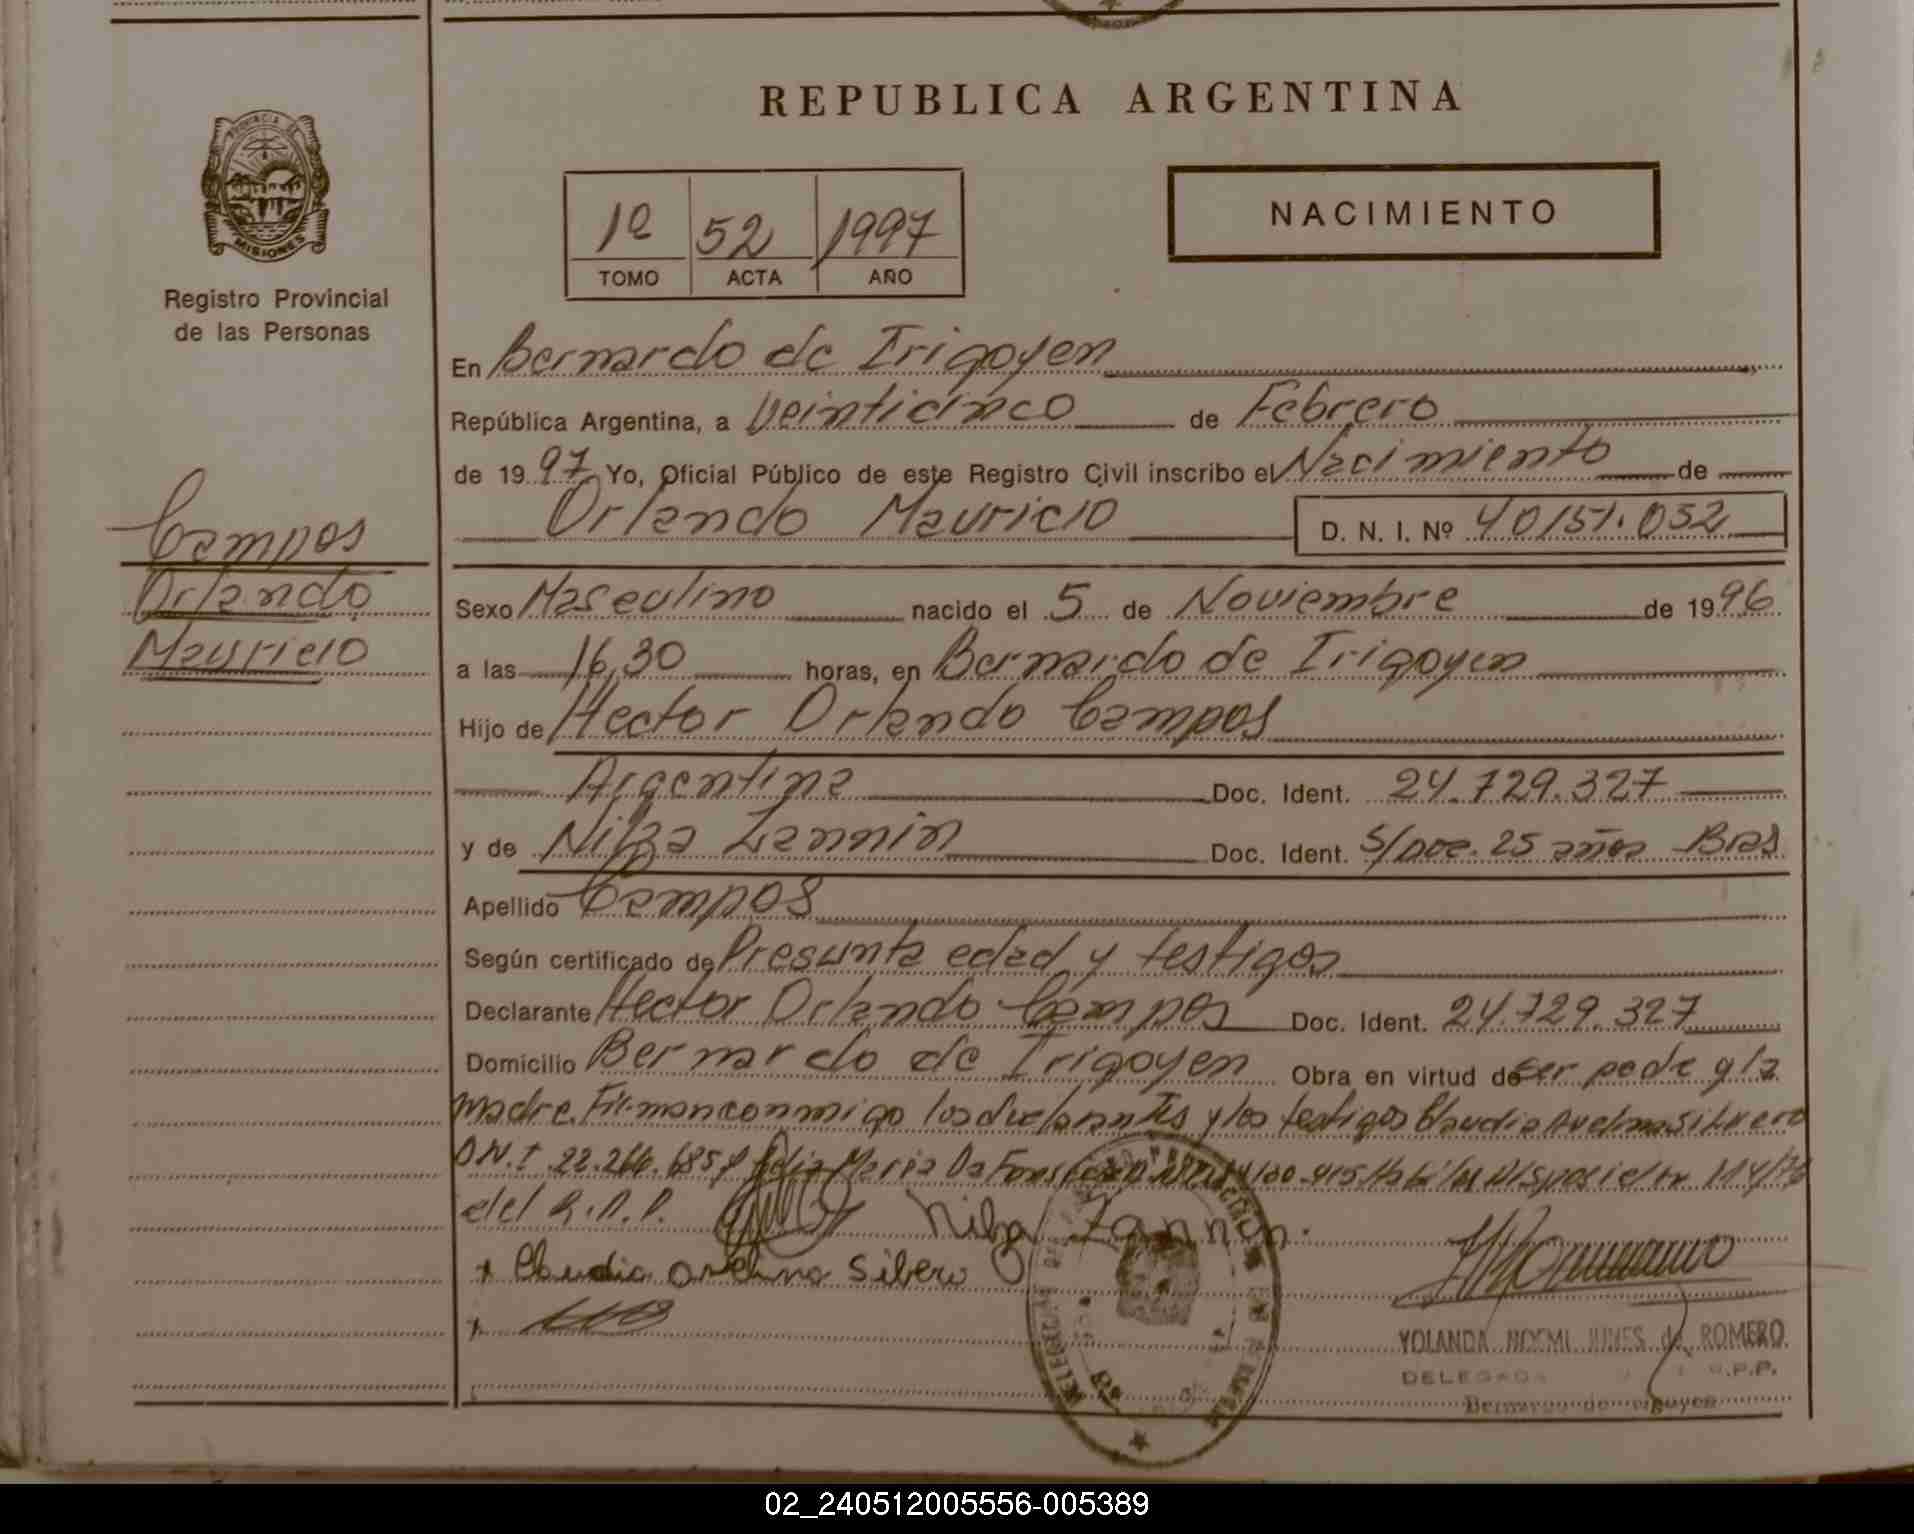 REPUBLICA ARGENTINA
PROVINCIA DE
MISIONES
Registro Provincial
de las Personas
1º 52 1997
TOMO ACTA AÑO
NACIMIENTO
En Bernardo de Irigoyen
República Argentina, a Veinticinco de Febrero
de 1997 Yo, Oficial Público de este Registro Civil inscribo el Nacimiento de
Orlando Mauricio D. N. I. Nº 40151.052
Campos
Orlando
Mauricio
Sexo Masculino nacido el 5 de Noviembre de 1996
a las 16,30 horas, en Bernardo de Irigoyen
Hijo de Hector Orlando Campos
Argentina Doc. Ident. 24.729.327
y de Nilza Zannin Doc. Ident. S/Doc. 25 años Bras
Apellido Campos
Según certificado de Presunta edad y testigos
Declarante Hector Orlando Campos Doc. Ident. 24.729.327
Domicilio Bernardo de Irigoyen Obra en virtud de ser pade y la
madre. Firman conmigo los declarantes y los testigos Claudia Avelina Silvero
D.N.I. 22.266.685 y Maria Da 114/78
del R.P.P. Nilza Zannin.
x Claudia Avelina Silvero
x
YOLANDA NOEMI JUVES de ROMERO
DELEGADA R.P.P.
Bernardo de Irigoyen
02_240512005556-005389